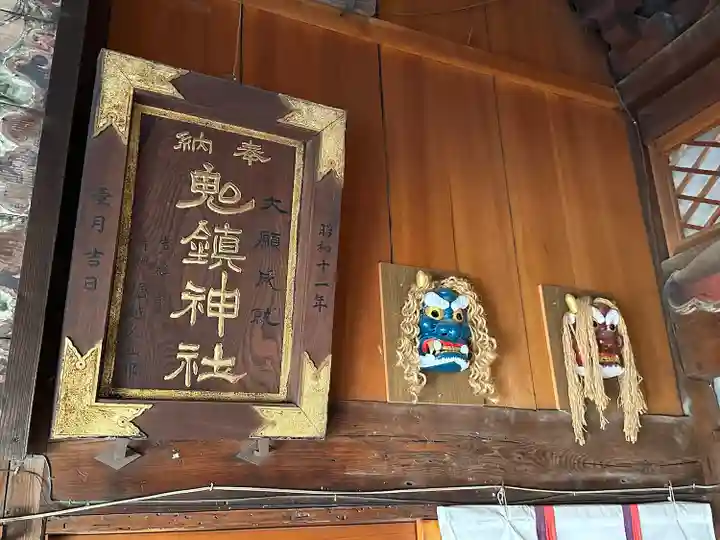 奉納
昭和十一年
大願成就
鬼鎮神社
壹月吉日